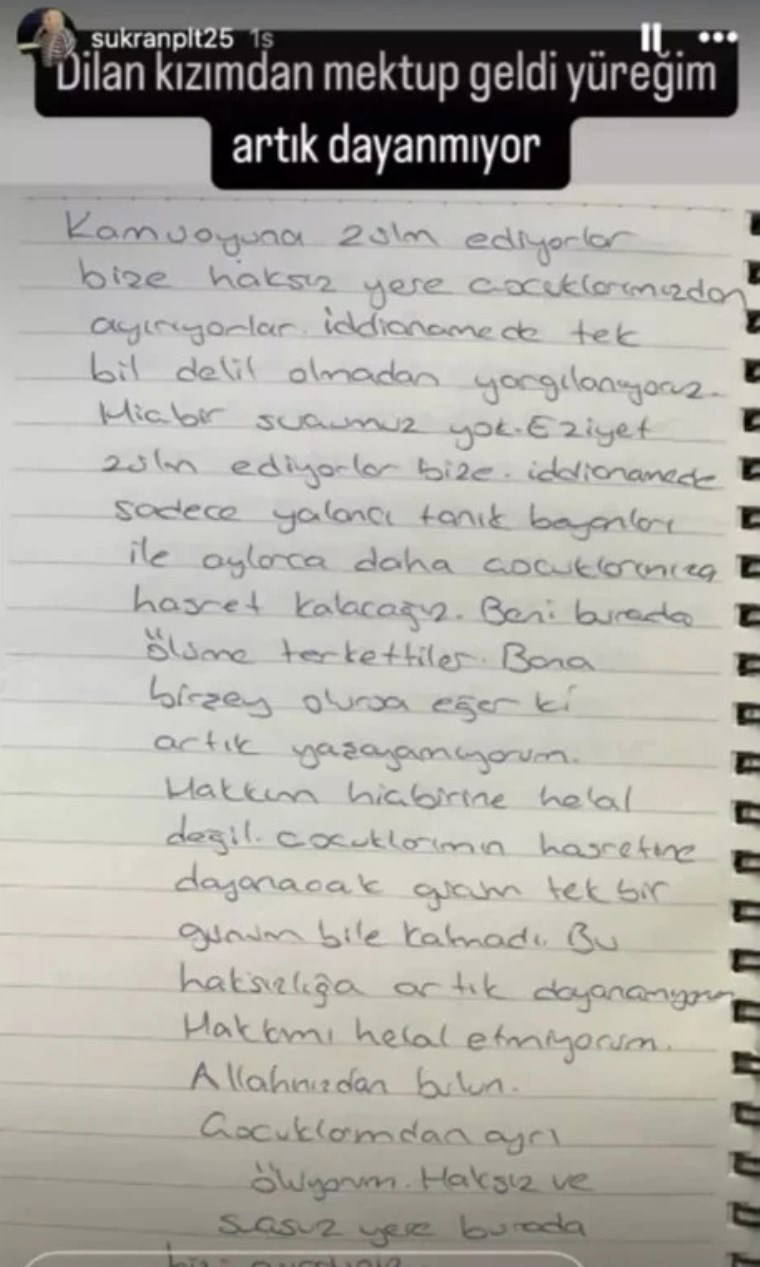 sukranplt25 1s
Dilan kızımdan mektup geldi yüreğim
artık dayanmıyor
Kamuoyuna zulm ediyorlar
bize haksız yere cocuklarımızdan
ayırıyorlar. iddianamede tek
bil delil olmadan yargılanıyoruz.
Hicbir sucumuz yok. Eziyet
zulm ediyorlar bize. iddianamede
sadece yalancı tanık beyanları
ile aylarca daha cocuklarımıza
hasret kalacağız. Beni burada
ölüme terkettiler. Bana
birşey olursa eğer ki
artık yaşayamıyorum.
Hakkım hicbirine helal
değil. cocuklarımın hasretine
dayanacak gucum tek bir
gunum bile kalmadı. Bu
haksızlığa artık dayanamıyorum
Hakkımı helal etmiyorum.
Allahınızdan bulun.
Cocuklarımdan ayrı
ölüyorum. Haksız ve
sucsuz yere burada